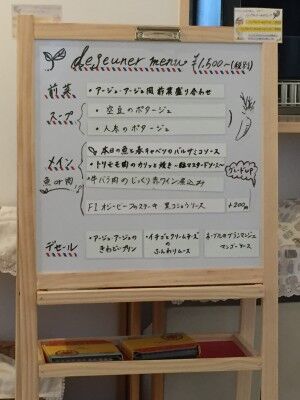 dejeuner menu ¥1,500〜(税別)
前菜
・アージュ・アージュ風 前菜盛り合わせ
スープ
・空豆のポタージュ
・人参のポタージュ
メイン
魚 or 肉
本日の魚と春キャベツのバルサミコソース
・トリモモ肉のカリッと焼き〜粒マスタードソース〜
・牛バラ肉のじっくり赤ワイン煮込み
グレードUP
黒コショウソース
+200円
デセール
・アージュアージュの
きわどープリン
・イチゴとクリームチーズ
の
ふんわりムース
マンゴーソース